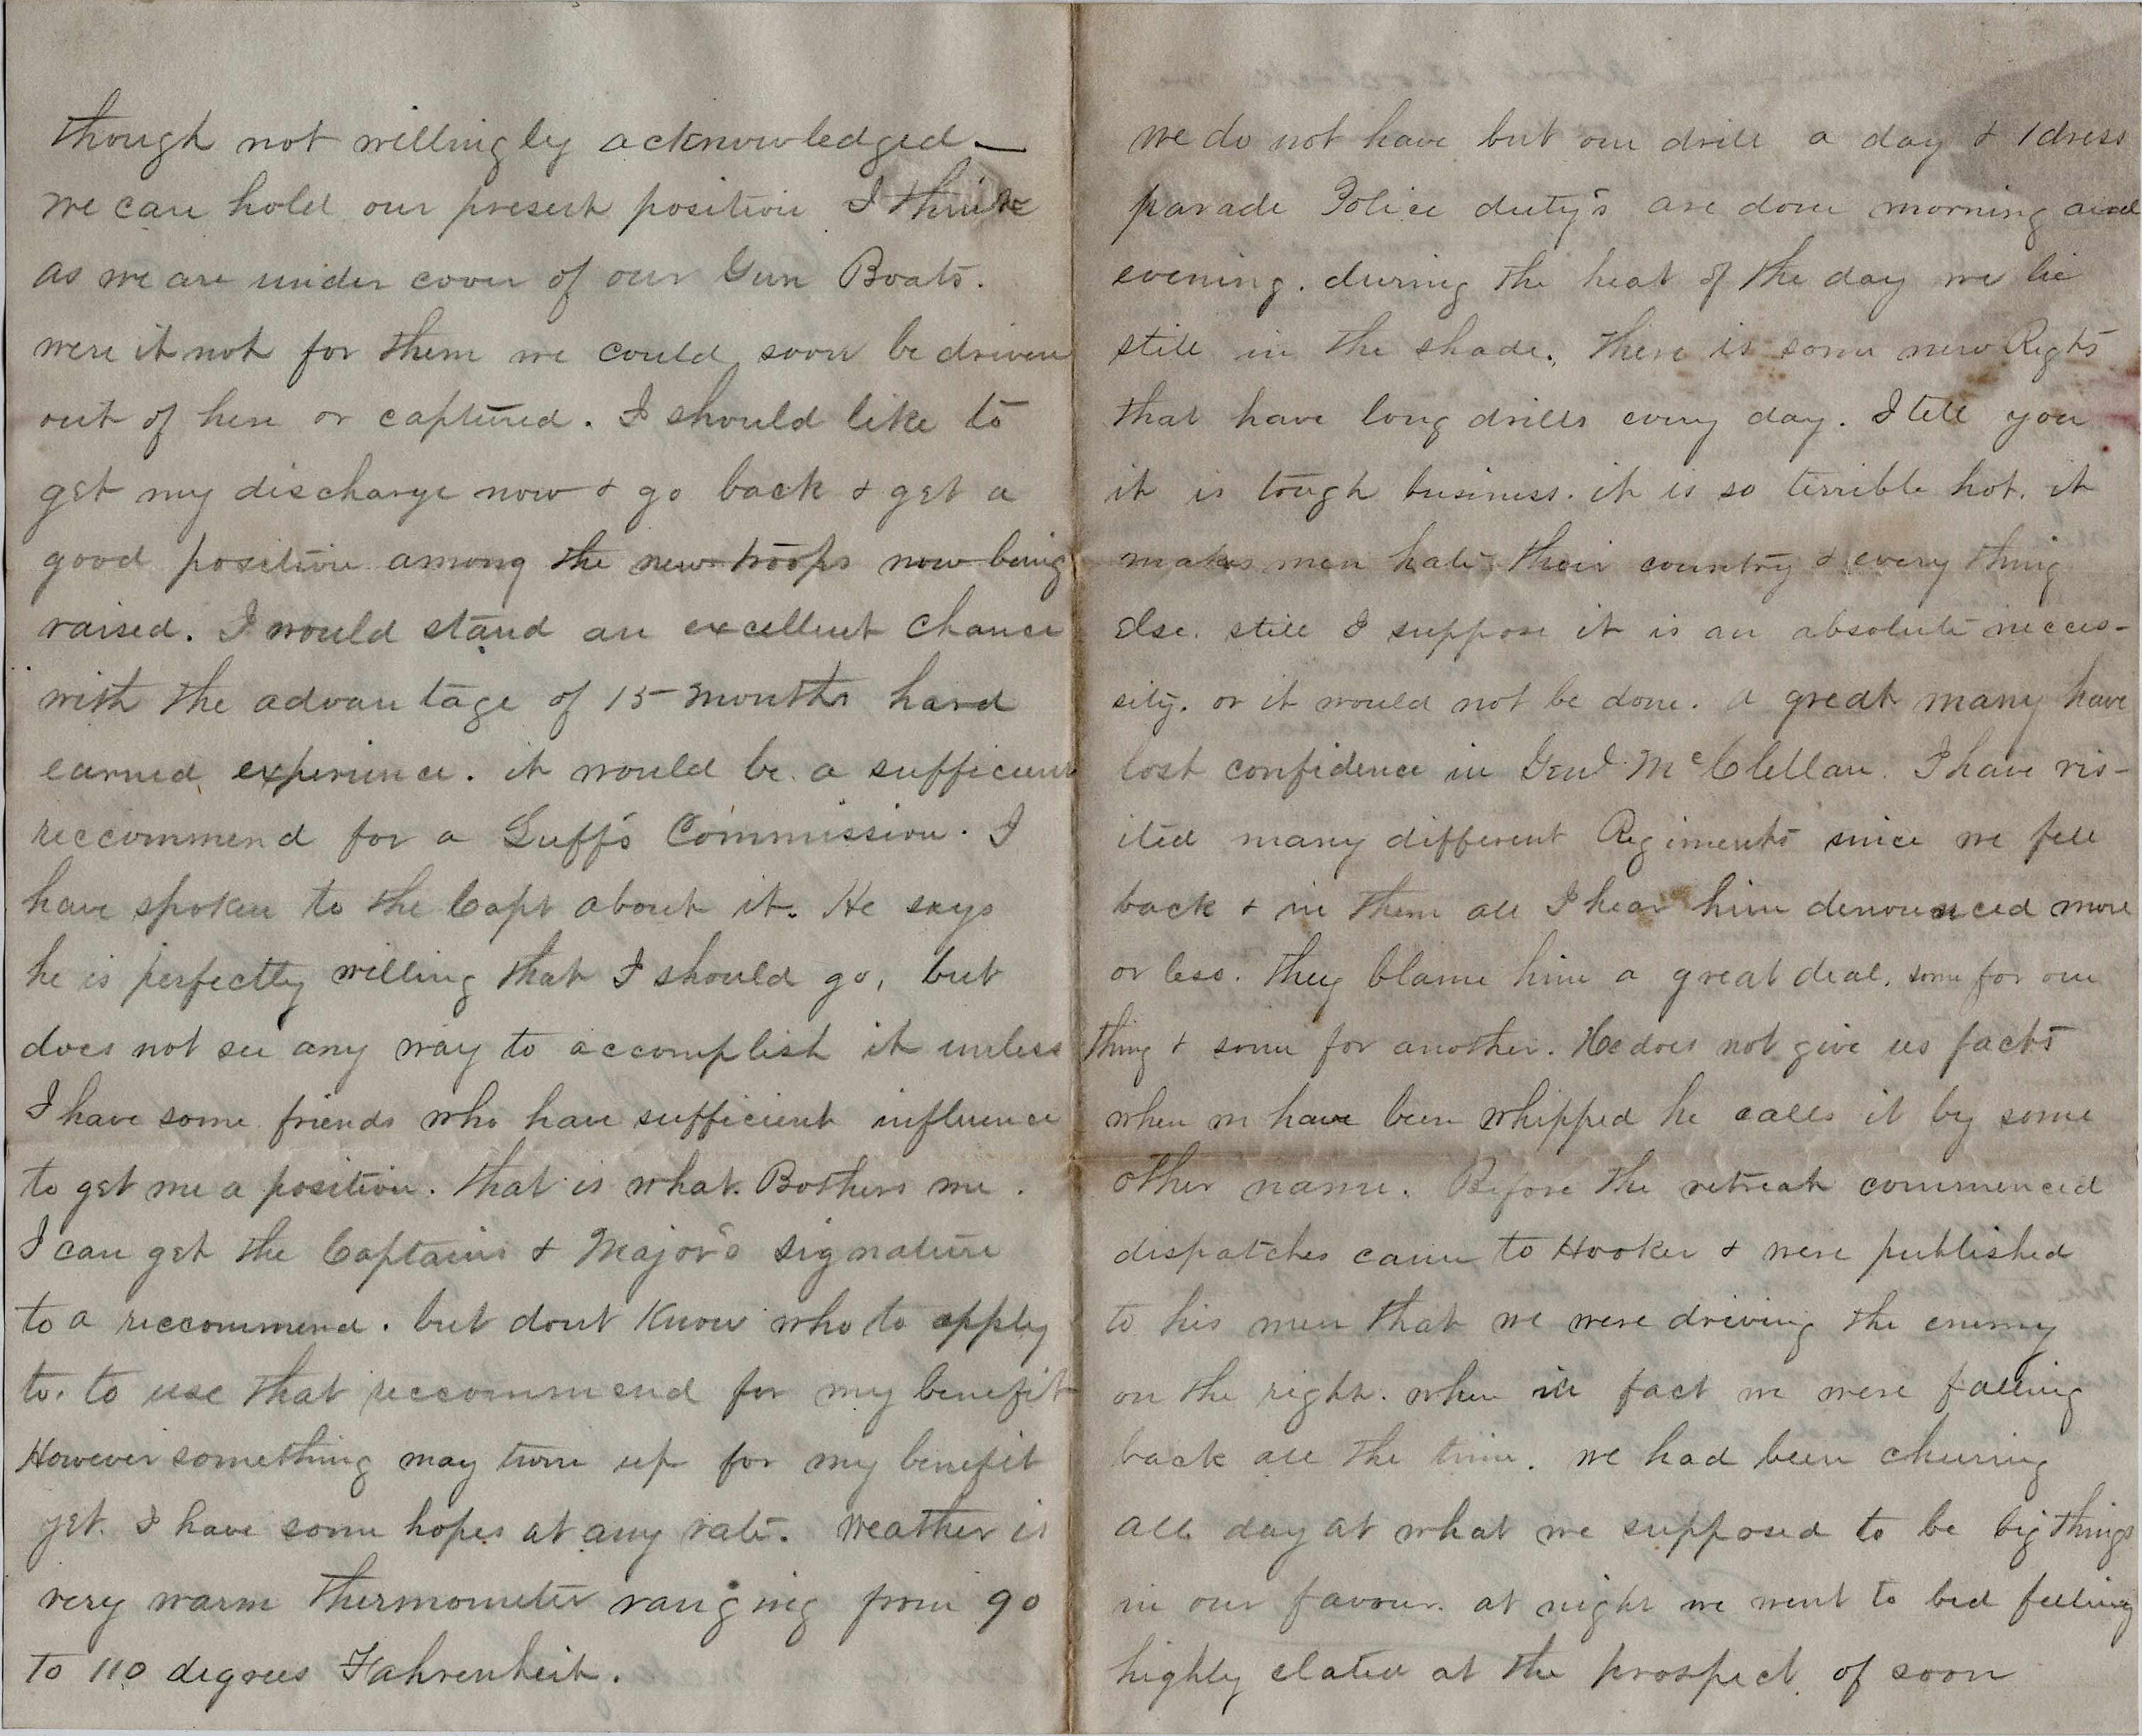 though not willingly acknowledged —
we can hold our present position I think
as we are under cover of our Gun Boats.
were it not for them we could soon be driven
out of here or captured. I should like to
get my discharge now & go back & get a
good position among the new troops now being
raised. I would stand an excellent chance
with the advantage of 15 months hard
earned experience. it would be a sufficient
reccommend for a Commission. I
have spoken to the Capt about it. He says
he is perfectly willing that I should go, but
does not see any way to accomplish it unless
I have some friends who have sufficient influence
to get me a position. that is what Bothers me.
I can get the Captains & Major's signature
to a reccommend. but dont Know who to apply
to. to use that reccommend for my benefit
However something may turn up for my benefit
yet. I have some hopes at any rate. Weather is
very warm thermometer ranging from 90
to 110 degrees Fahrenheit.
we do not have but one drill a day & 1 dress
parade Police duty's are done morning and
evening. during the heat of the day we lie
still in the shade. There is some new Regts
that have long drills every day. I tell you
it is tough business. it is so terrible hot. it
makes men hate their country & every thing
Else. still I suppose it is an absolute necces-
sity. or it would not be done. A great many have
lost confidence in Genl McClellan. I have vis-
ited many different Regiments since we fell
back & in them all I hear him denounced more
or less. they blame him a great deal. some for one
thing & some for another. He does not give us facts
when we have been whipped he calls it by some
other name. Before the retreat commenced
dispatches came to Hooker & were published
to his men that we were driving the enemy
on the right. when in fact we were falling
back all the time. we had been cheering
all day at what we supposed to be big things
in our favour. at night we went to bed feeling
highly elated at the prospect of soon